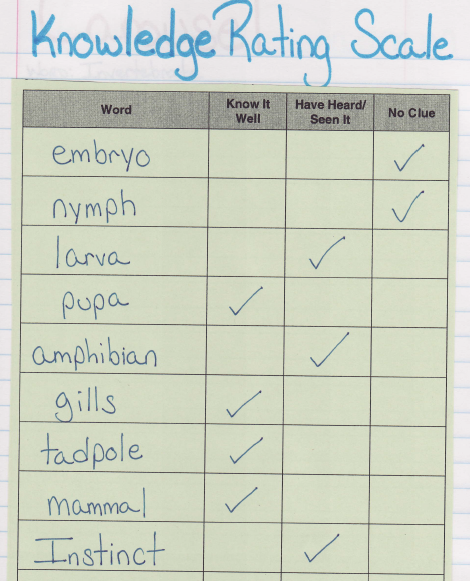 Knowledge Rating Scale
Word Know It Well Have Heard/ Seen It No Clue
embryo ✓
nymph ✓
larva ✓
pupa ✓
amphibian ✓
gills ✓
tadpole ✓
mammal ✓
Instinct ✓